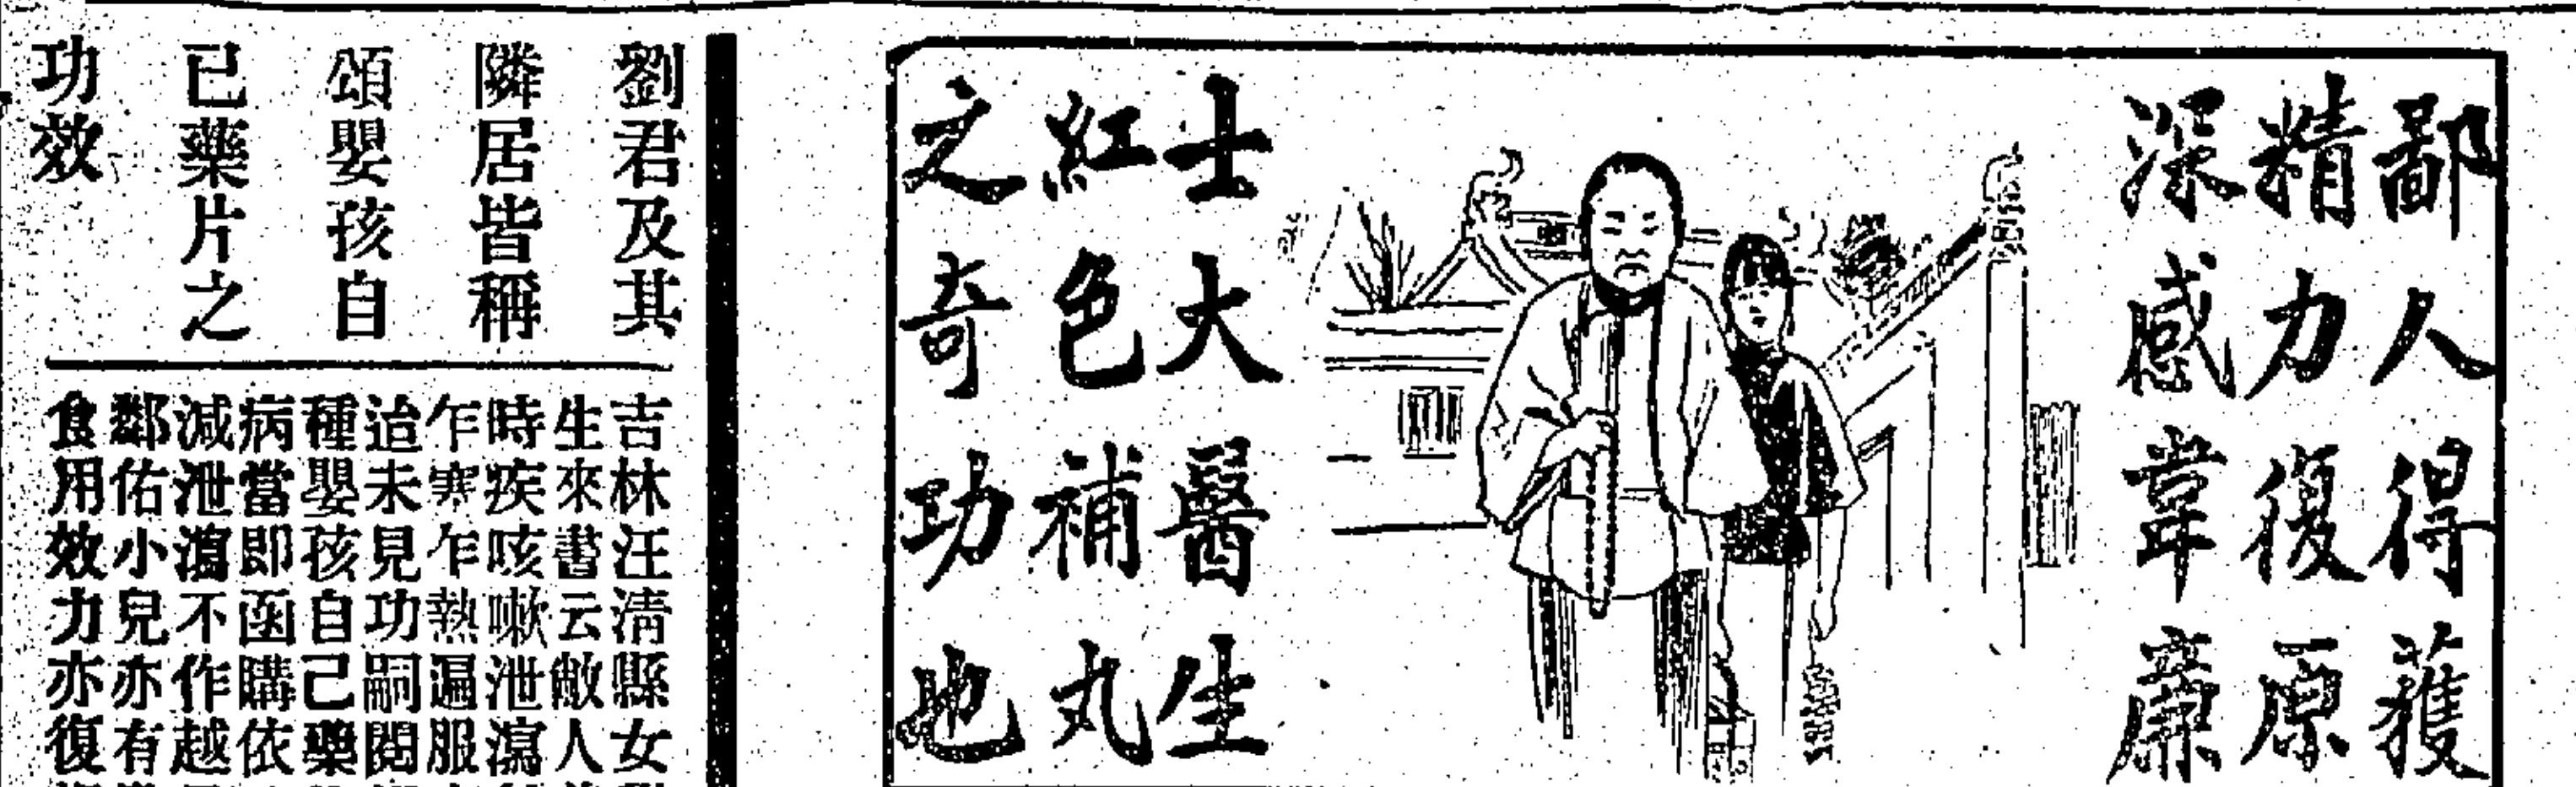 鄙人得獲
精力復原
深感韋廉
士大醫生
紅色補丸
之奇功也
劉君及其
隣居皆稱
頌嬰孩自
已藥片之
功效
吉林汪清縣女
生來書云敝人
時疾咳嗽泄瀉
乍寒乍熱遍服
迨未見功嗣閱
種嬰孩自己藥
病當即函購依
減泄瀉不作越
鄰佑小兒亦有
食用效力亦復